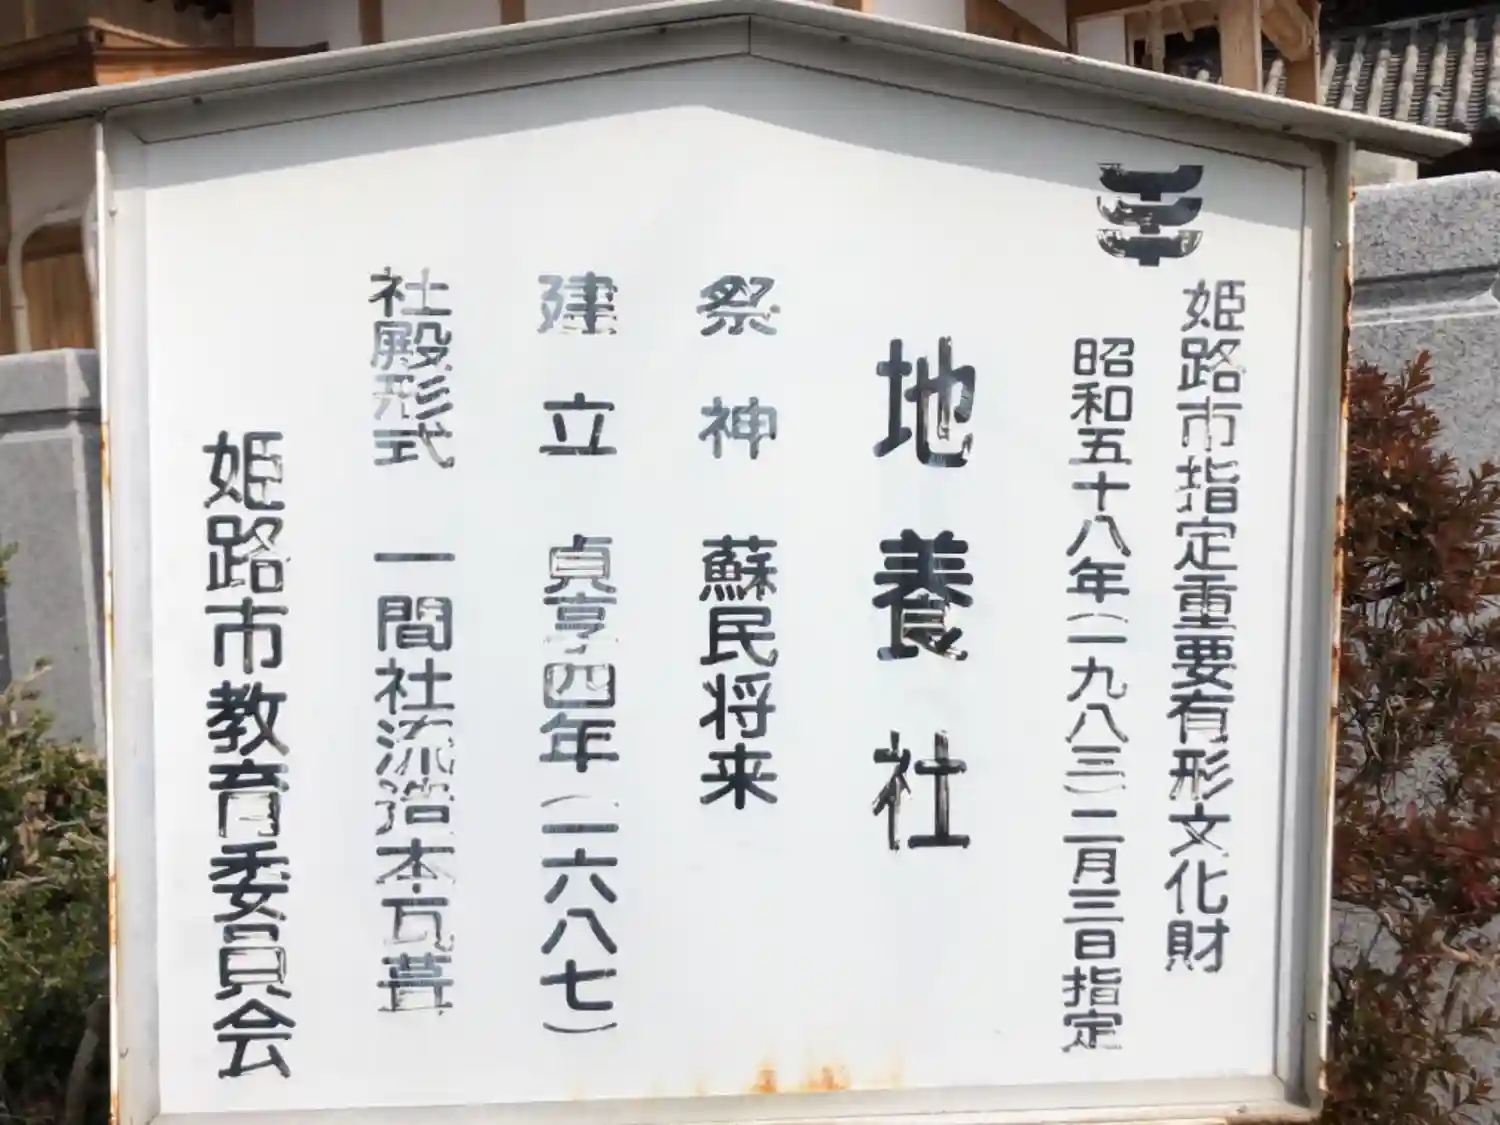 姫路市指定重要有形文化財
昭和五十八年(一九八三)二月三日指定
地養社
祭神 蘇民将来
建立 貞享四年(一六八七)
社殿形式 一間社流造本瓦葺
姫路市教育委員会